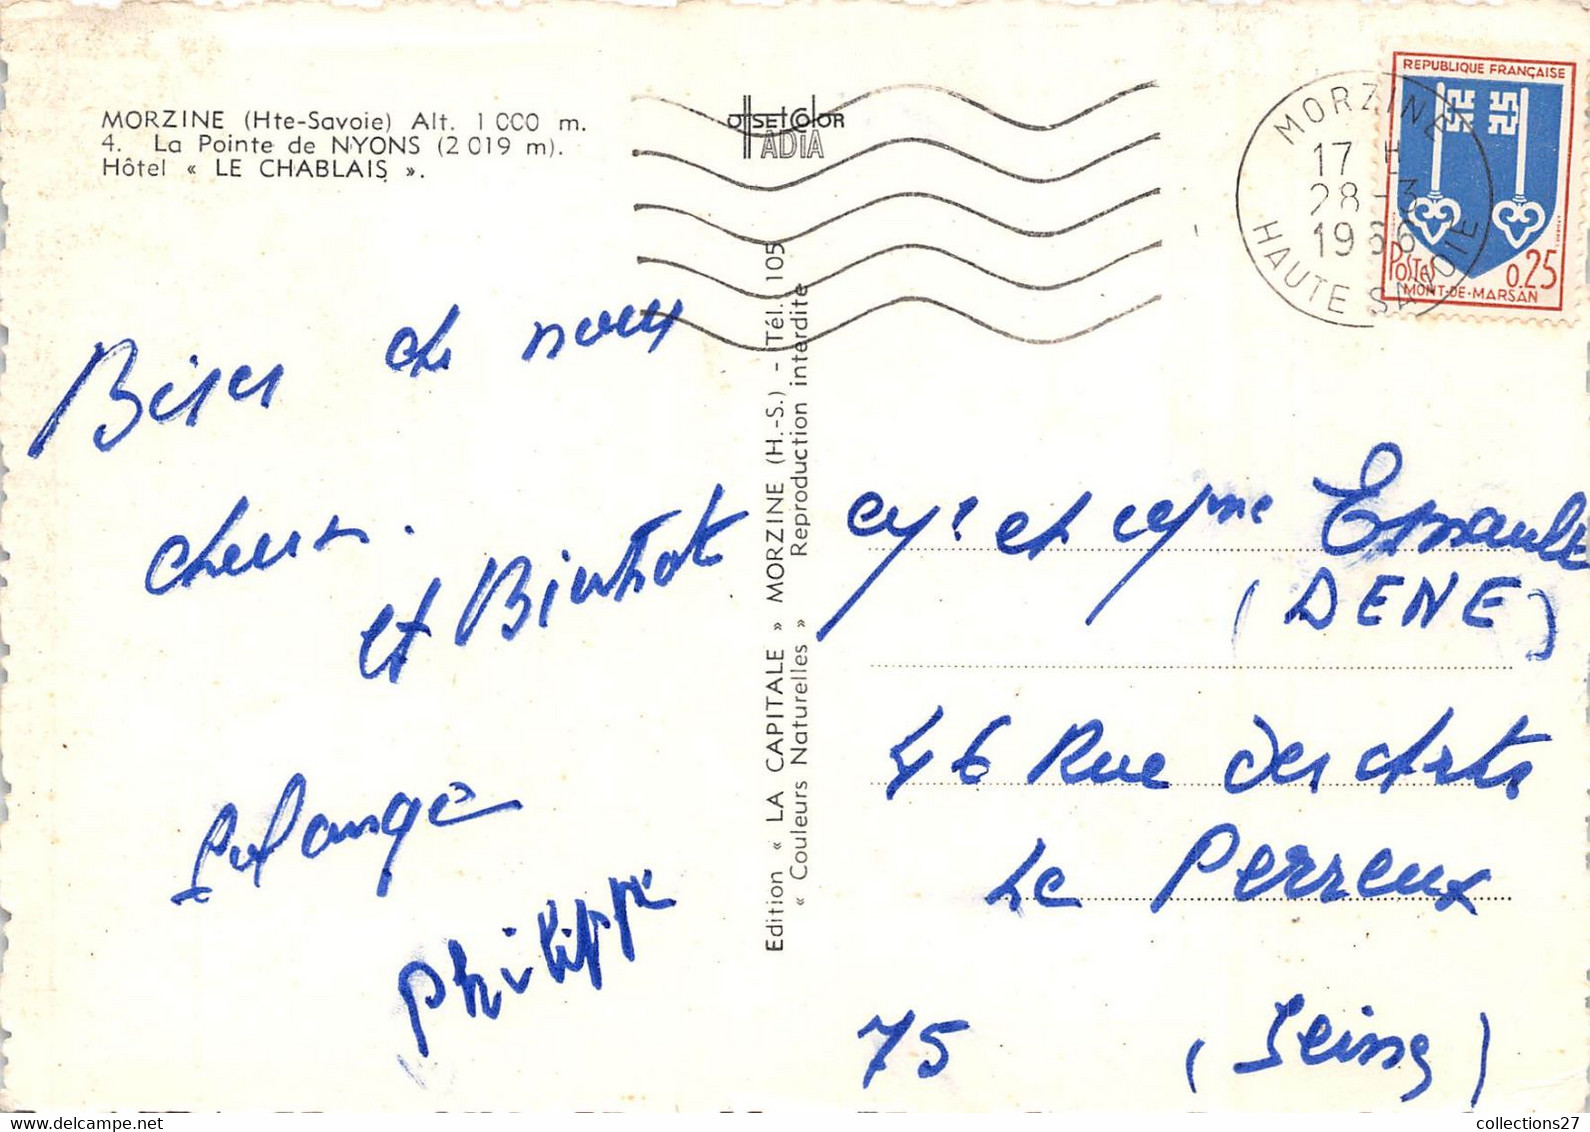 MORZINE (Hte-Savoie) Alt. 1 000 m.
4. La Pointe de NYONS (2 019 m).
Hôtel « LE CHABLAIS ».
offsetcolor
ADIA
REPUBLIQUE FRANÇAISE
POSTES 0.25
MONT-DE-MARSAN
MORZINE
17 H
28 - 3
1966
HAUTE SAVOIE
Bises de nous
deux.
et Bientôt
Solange
Philippe
Edition « LA CAPITALE » MORZINE (H.-S.) - Tél. 105
« Couleurs Naturelles » Reproduction interdite
et
(DENE)
46 Rue des Arts
Le Perreux
75 (Seine)
collections27